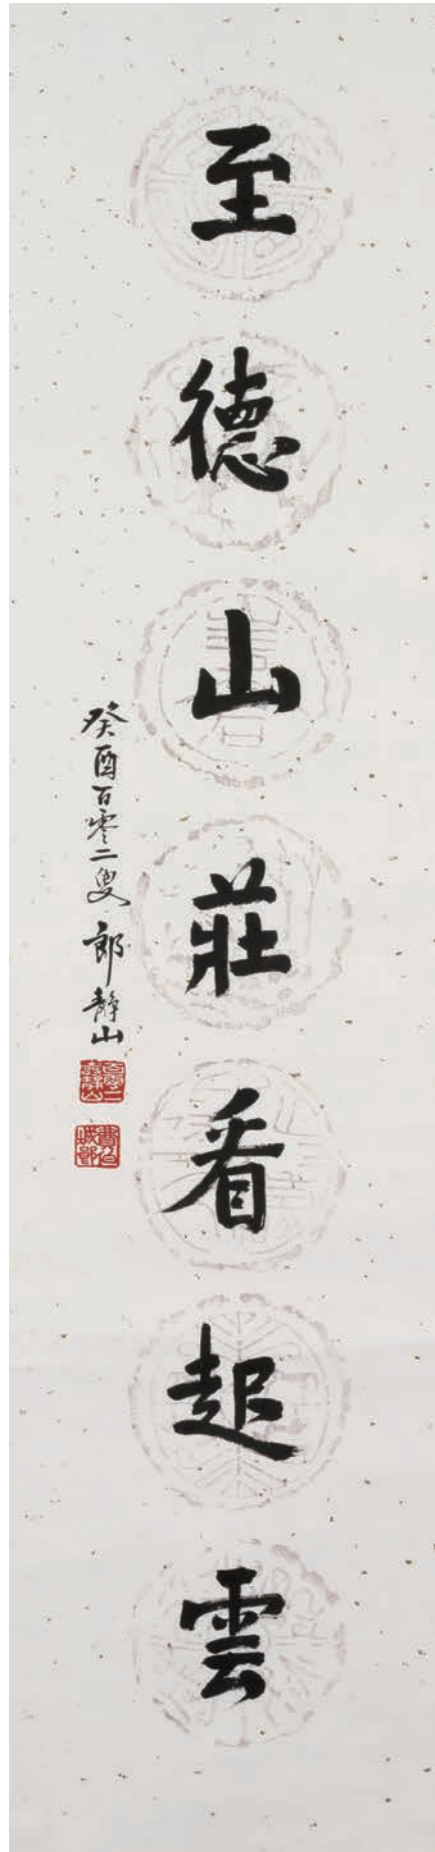 至德山莊看起雲
癸酉百零二叟 郎靜山